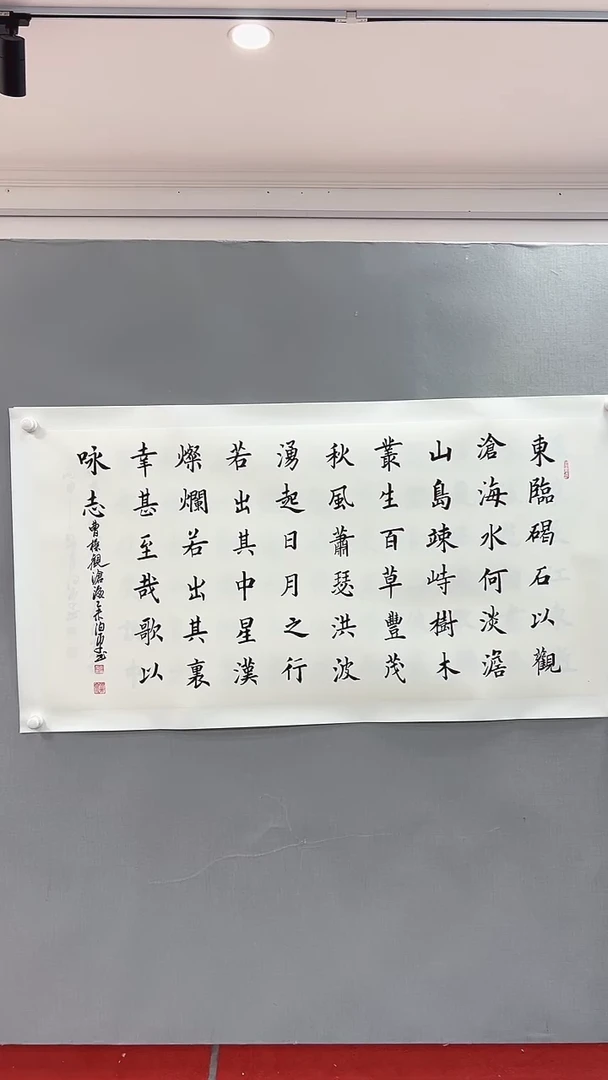 東臨碣石以觀
滄海水何淡澹
山島竦峙樹木
叢生百草豐茂
秋風蕭瑟洪波
湧起日月之行
若出其中星漢
燦爛若出其裏
幸甚至哉歌以
咏志曹操觀滄海